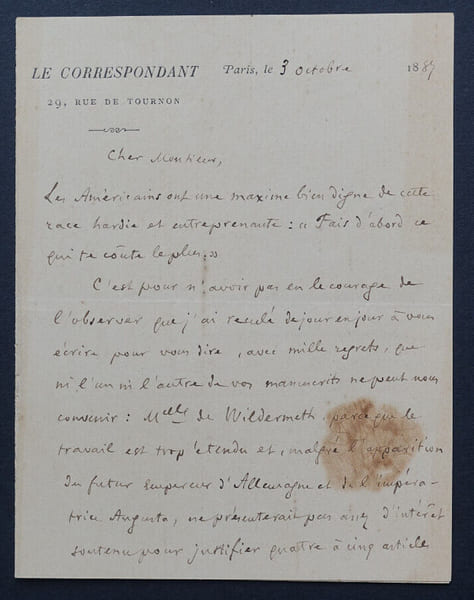 LE CORRESPONDANT Paris, le 3 octobre 1887
29, RUE DE TOURNON
Cher Monsieur,
Les Américains ont une maxime bien digne de cette
race hardie et entreprenante : « Fais d'abord ce
qui te coûte le plus. »
C'est pour n'avoir pas eu le courage de
l'observer que j'ai reculé de jour en jour à vous
écrire pour vous dire, avec mille regrets, que
ni l'un ni l'autre de vos manuscrits ne peut nous
convenir : Melle de Wildermeth, parce que le
travail est trop étendu et, malgré l'apparition
du futur Empereur d'Allemagne et de l'impéra-
trice Augusta, ne présenterait pas assez d'intérêt
soutenu pour justifier quatre à cinq article